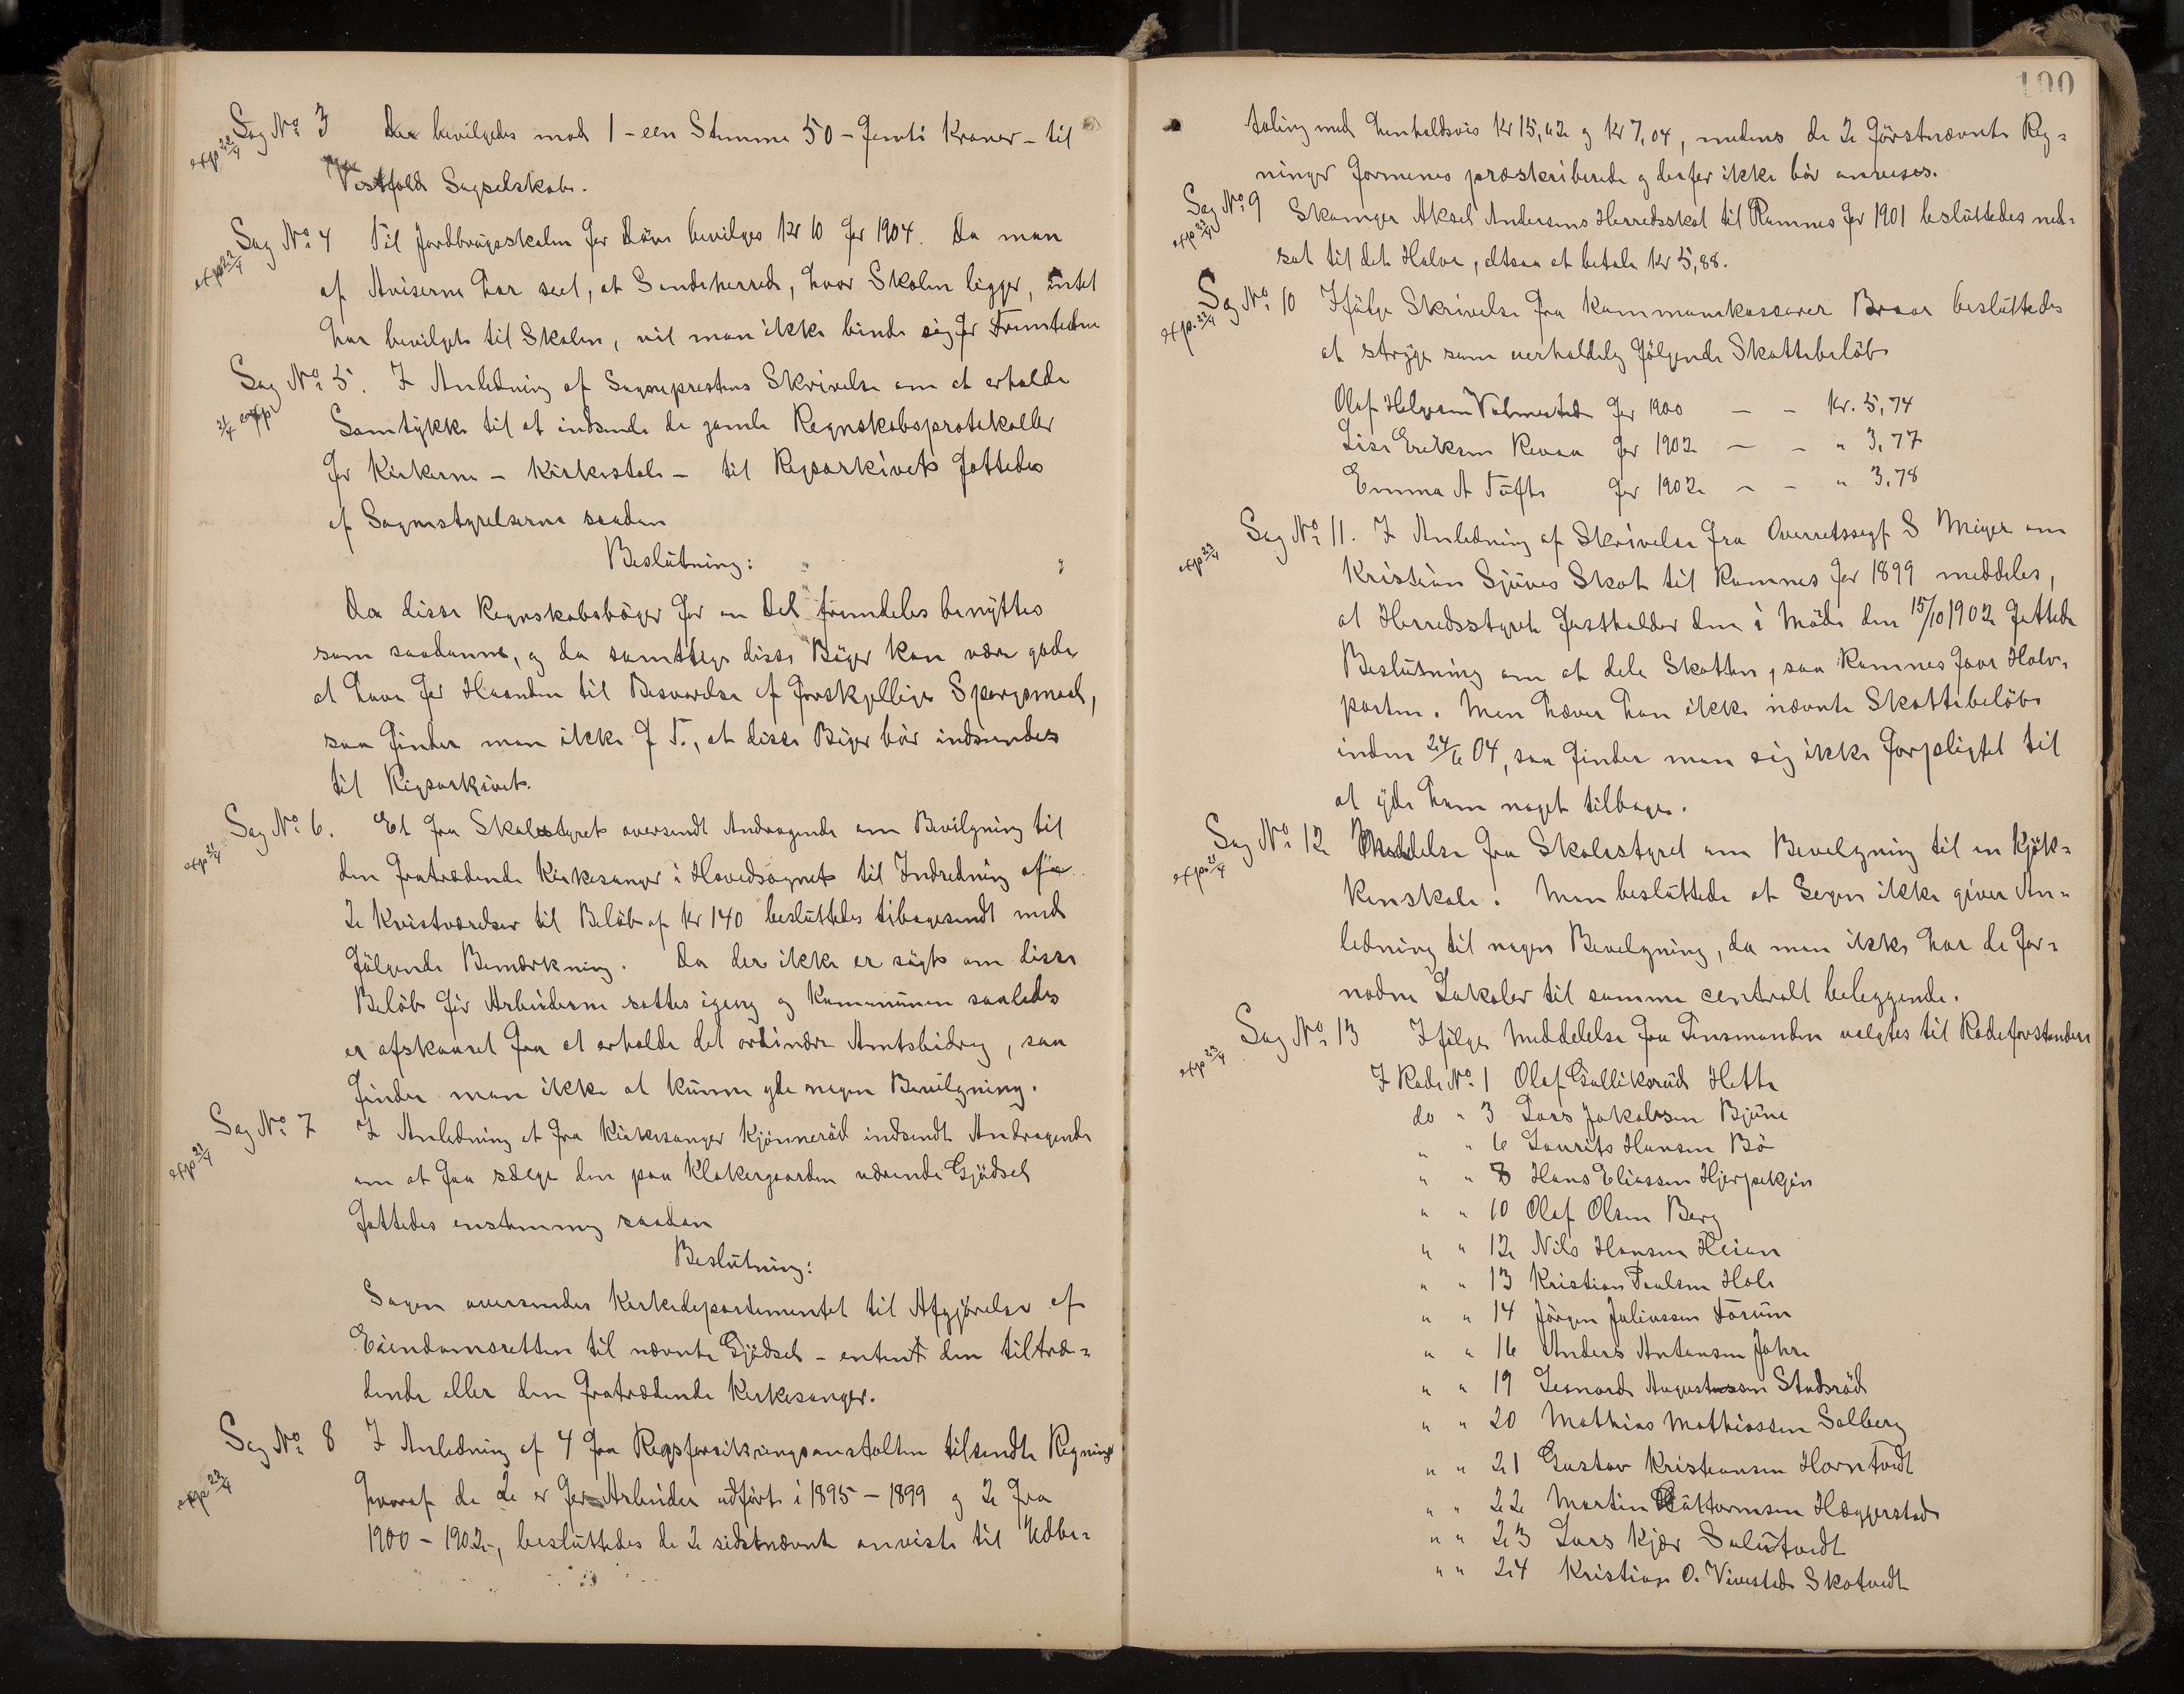 Sag No 3 Der bevilgedes mod 1 - een Stemme 50 - femti Kroner - til
exp 22/4
Vestfolds Sagselskab.
Sag No 4 Til Jordbrugsskolen for Døve bevilges Kr 10 for 1904. Da man
exp 22/4
af Aviserne har seet, at Sandeherred, hvor Skolen ligger, intet
har bevilget til Skolen, vil man ikke binde sig for Fremtiden
Sag No 5. I Anledning af Sogneprestens Skrivelse om at erholde
21/4 exp
Samtykke til at indsende de gamle Regnskabsprotokoller
for Kirkerne - Kirkestole - til Rigsarkivet fattedes
af Sognestyrelserne saadan
Beslutning:
Da disse Regnskabsbøger for en Del fremdeles benyttes
som saadanne, og da samtlige disse Bøger kan være gode
at have for Haanden til Besvarelse af forskjellige Spørgsmaal,
saa finder man ikke f. T., at disse Bøger bør indsendes
til Rigsarkivet.
Sag No 6. Et fra Skolestyret oversendt Andragende om Bevilgning til
exp 21/4
den fratrædende Kirkesanger i Hovedsognet til Indredning af
2 Kvistværelser til Beløb af Kr 140 besluttedes tilbagesendt med
følgende Bemærkning. Da der ikke er søgt om disse
Beløb før Arbeiderne sattes igang og Kommunen saaledes
er afskaaret fra at erholde det ordinære Amtsbidrag, saa
finder man ikke at kunne yde nogen Bevilgning.
Sag No 7 I Anledning et fra Kirkesanger Kjønnerød indsendt Andragende
exp 21/4
om at faa sælge den paa Klokkergaarden værende Gjødsel
fattedes enstemmig saadan
Beslutning:
Sagen oversendes Kirkedepartementet til Afgjørelse af
Eiendomsretten til nævnte Gjødsel - enten den tiltræ-
dende eller den fratrædende Kirkesanger.
Sag No 8 I Anledning af 4 fra Rigsforsikringsanstalten tilsendte Regninger
exp 23/4
hvoraf de 2 er for Arbeider udført i 1895 - 1899 og 2 fra
1900 - 1902, besluttedes de 2 sidstnævnte anvist til Udbe-
100
taling med henholdsvis Kr 15,62 og Kr 7,04, medens de 2 førstnævnte Reg-
ninger formenes præskriberede og derfor ikke bør anvises.
Sag No 9 Skomager Aksel Andersens Herredsskat til Ramnes for 1901 besluttedes ned-
exp 22/4
sat til det Halve, altsaa at betale Kr 5,88.
Sag No 10 Ifølge Skrivelse fra Kommunekasserer Braar besluttedes
exp. 22/4
at stryge som uerholdelig følgende Skattebeløb
Olaf Helgesen Valmestad for 1900 - - Kr. 5,74
Lise Eriksen Revaa for 1902 - - " 3,77
Emma A Tufte for 1902 - - " 3,78
Sag No 11. I Anledning af Skrivelse fra Overretssagf. S Meyer om
exp 23/4
Kristian Sjuves Skat til Ramnes for 1899 meddeles,
at Herredsstyret fastholder den i Møde den 15/10 1902 fattede
Beslutning om at dele Skatten, saa Ramnes faar Halv-
parten. Men hæver han ikke nævnte Skattebeløb
inden 24/6 04, saa finder man sig ikke forpligtet til
at yde ham noget tilbage.
Sag No 12 Meddelelse fra Skolestyret om Bevilgning til en Kjøk-
exp 21/4
kenskole. Man besluttede at Sagen ikke giver An-
ledning til nogen Bevilgning, da man ikke har de for-
nødne Lokaler til samme centralt beliggende.
Sag No 13 Ifølge Meddelelse fra Lensmanden valgtes til Rodeforstandere
exp 23/4
I Rode No 1 Olaf Gulliksrud Hotte
do " 3 Lars Jakobsen Bjune
" " 6 Laurits Hansen Bø
" " 8 Hans Eliassen Hjerpekjøn
" " 10 Olaf Olsen Berg
" " 12 Nils Hansen Heian
" " 13 Kristian Paulsen Hole
" " 14 Jörgen Juliussen Forum
" " 16 Anders Antonsen Jahre
" " 19 Leonard Augustussen Stadsrød
" " 20 Mathias Mathiassen Solberg
" " 21 Gustav Kristiansen Horntvedt
" " 22 Martin Guttormsen Hæggerstad
" " 23 Lars Kjær Sulutvedt
" " 24 Kristian O. Vivestad Skotvedt